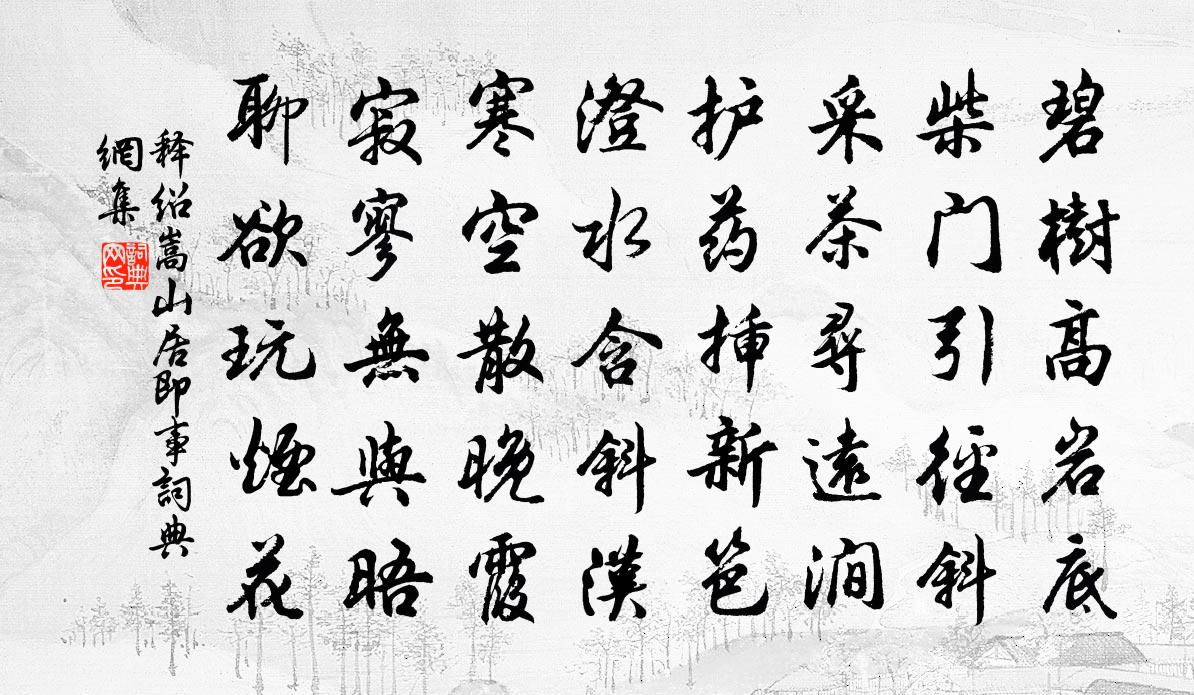 碧樹高岩底
柴门引徑斜
采茶尋遠澗
护药揷新笆
澄水含斜漢
寒空散晚霞
寂寥無與晤
聊欲玩煙花
释绍嵩山居即事詞典
網集
詞典网印